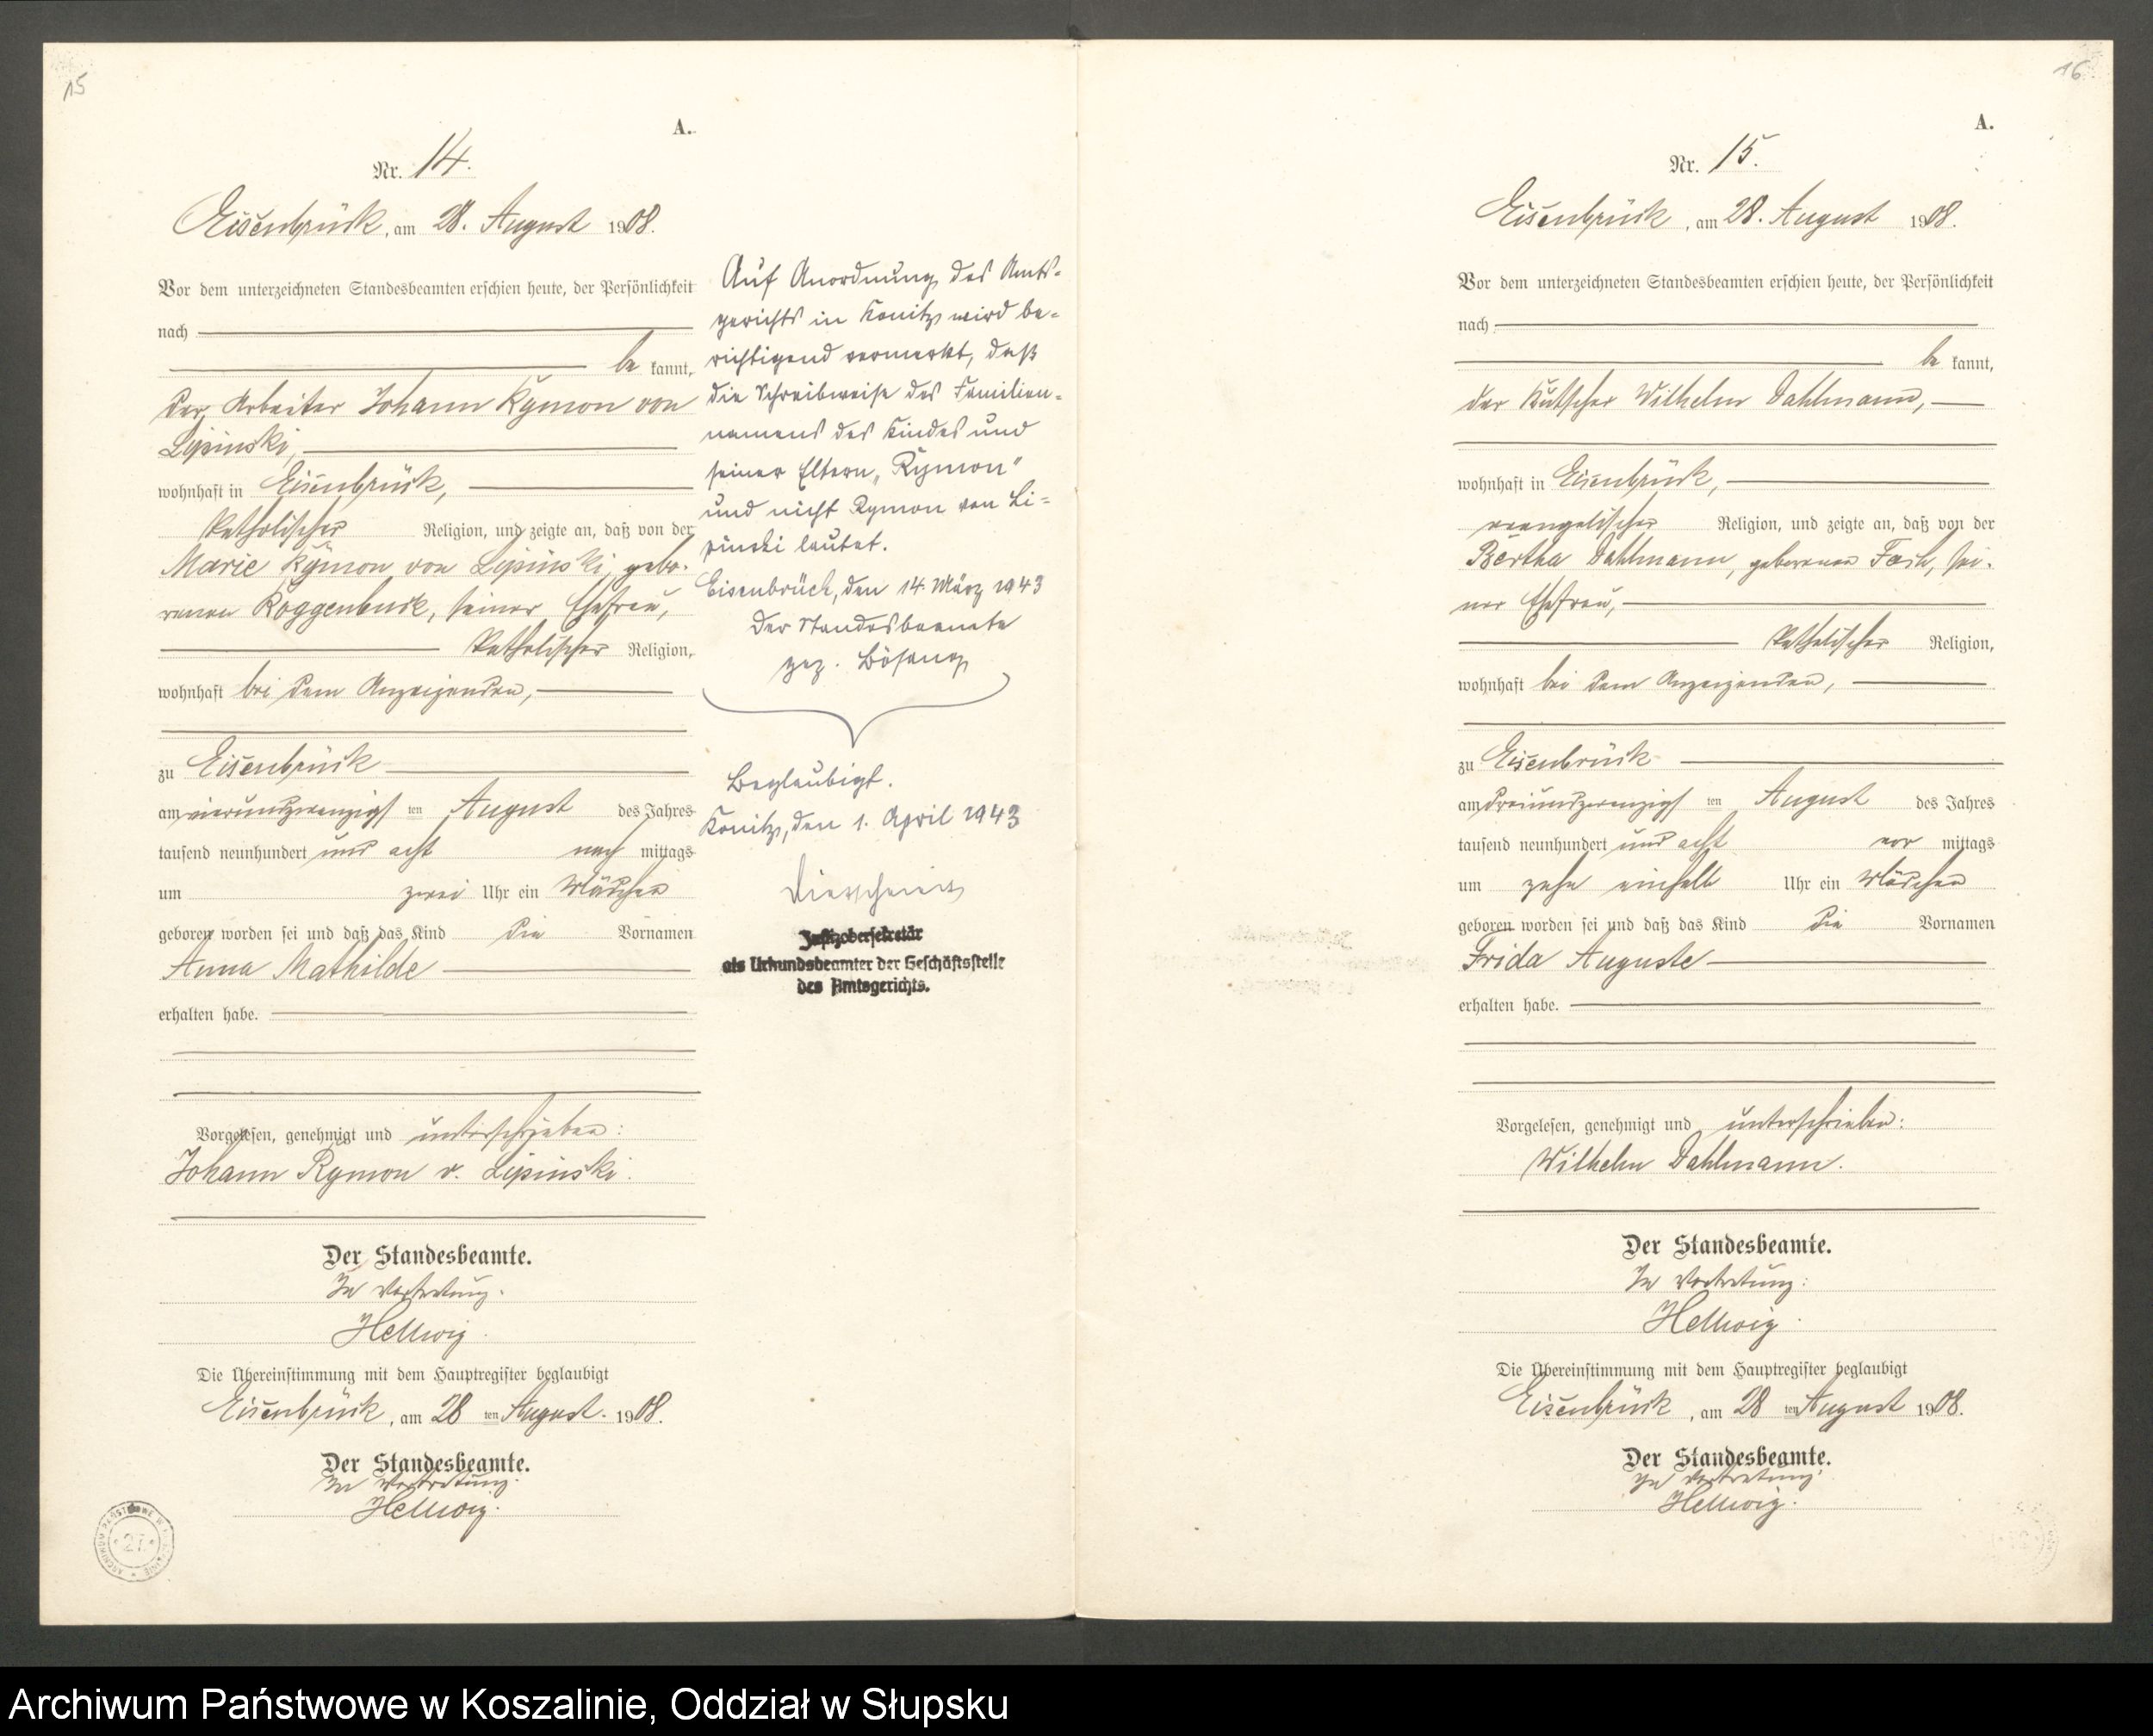 15
A.
Nr. 14.
Eisenbrück, am 28. August 1908.
Vor dem unterzeichneten Standesbeamten erschien heute, der Persönlichkeit
nach
be kannt,
der Arbeiter Johann Rymon von
Lipinski,
wohnhaft in Eisenbrück,
katholischer Religion, und zeigte an, daß von der
Marie Rymon von Lipinski, gebo-
renen Roggenbuck, seiner Ehefrau,
katholischer Religion,
wohnhaft bei dem Anzeigenden,
zu Eisenbrück
am vierundzwanzigsten August des Jahres
tausend neunhundert und acht nach mittags
um zwei Uhr ein Mädchen
geboren worden sei und daß das Kind die Vornamen
Anna Mathilde
erhalten habe.
Vorgelesen, genehmigt und unterschrieben:
Johann Rymon v. Lipinski.
Der Standesbeamte.
In Vertretung.
Hellwig.
Die Übereinstimmung mit dem Hauptregister beglaubigt
Eisenbrück, am 28 ten August. 1908.
Der Standesbeamte.
In Vertretung.
Hellwig.
Auf Anordnung des Amts-
gerichts in Konitz wird be-
richtigend vermerkt, daß
die Schreibweise des Familien-
namens des Kindes und
seiner Eltern „Rymon"
und nicht Rymon von Li-
pinski lautet.
Eisenbrück, den 14. März 1943
Der Standesbeamte
gez. Bösang
Beglaubigt.
Konitz, den 1. April 1943
Justizobersekretär
als Urkundsbeamter der Geschäftsstelle
des Amtsgerichts.
27
16
A.
Nr. 15.
Eisenbrück, am 28. August 1908.
Vor dem unterzeichneten Standesbeamten erschien heute, der Persönlichkeit
nach
be kannt,
der Kutscher Wilhelm Dahlmann,
wohnhaft in Eisenbrück,
evangelischer Religion, und zeigte an, daß von der
Bertha Dahlmann, geborenen Fash, sei-
ner Ehefrau,
katholischer Religion,
wohnhaft bei dem Anzeigenden,
zu Eisenbrück
am dreiundzwanzigsten August des Jahres
tausend neunhundert und acht vor mittags
um zehn einhalb Uhr ein Mädchen
geboren worden sei und daß das Kind die Vornamen
Frida Auguste
erhalten habe.
Vorgelesen, genehmigt und unterschrieben:
Wilhelm Dahlmann.
Der Standesbeamte.
In Vertretung:
Hellwig.
Die Übereinstimmung mit dem Hauptregister beglaubigt
Eisenbrück, am 28 ten August 1908.
Der Standesbeamte.
In Vertretung:
Hellwig.
Archiwum Państwowe w Koszalinie, Oddział w Słupsku